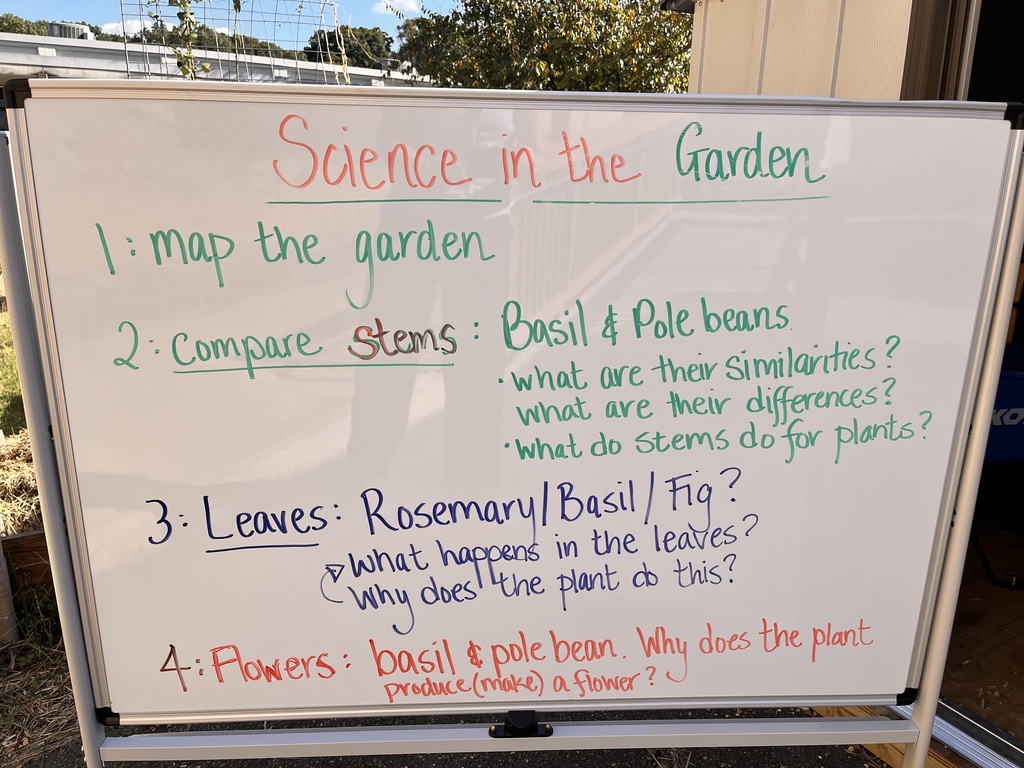 Science in the Garden
1: map the garden
2: compare stems: Basil & Pole beans.
• what are their similarities?
what are their differences?
• what do stems do for plants?
3: Leaves: Rosemary/Basil/Fig?
What happens in the leaves?
Why does the plant do this?
4: Flowers: basil & pole bean. Why does the plant
produce (make) a flower?